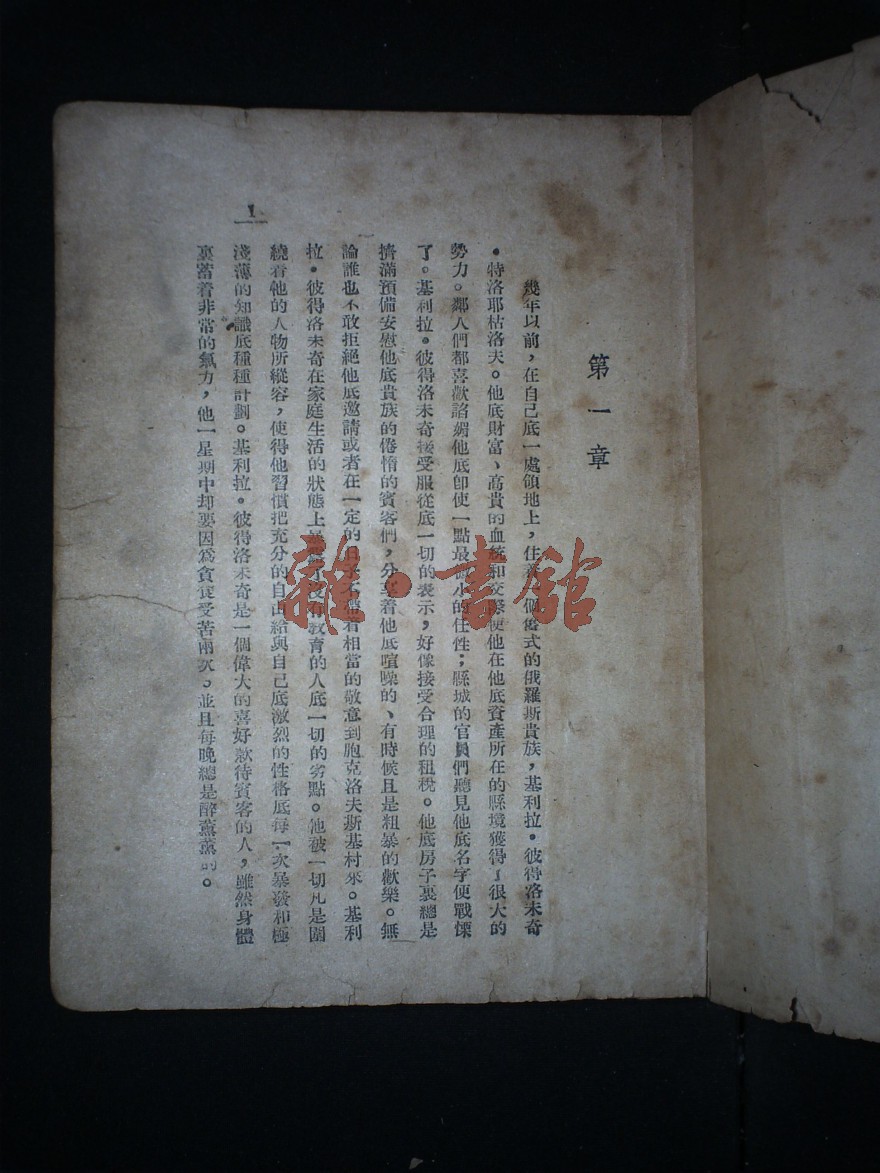 第一章
幾年以前，在自己底一處領地上，住着一個舊式的俄羅斯貴族，基利拉。彼得洛未奇
•特洛耶枯洛夫。他底財富、高貴的血統和交際使他在他底資產所在的縣境獲得了很大的
勢力。鄰人們都喜歡諂媚他底即使一點最微小的任性；縣城的官員們聽見他底名字便戰慄
了。基利拉。彼得洛未奇接受服從底一切的表示，好像接受合理的租稅。他底房子裏總是
擠滿預備安慰他底貴族的倦惰的賓客們，分享着他底喧噪的、有時候且是粗暴的歡樂。無
論誰也不敢拒絕他底邀請或者在一定的日子不帶着相當的敬意到胞克洛夫斯基村來。基利
拉。彼得洛未奇在家庭生活的狀態上暴露了沒有教育的人底一切的劣點。他被一切凡是圍
繞着他的人物所縱容，使得他習慣把充分的自由給與自己底激烈的性格底每一次暴發和極
淺薄的知識底種種計劃。基利拉。彼得洛未奇是一個偉大的喜好款待賓客的人，雖然身體
裏蓄着非常的氣力，他一星期中却要因爲貪食受苦兩次。並且每晚總是醉薰薰的。
1
雜•書館